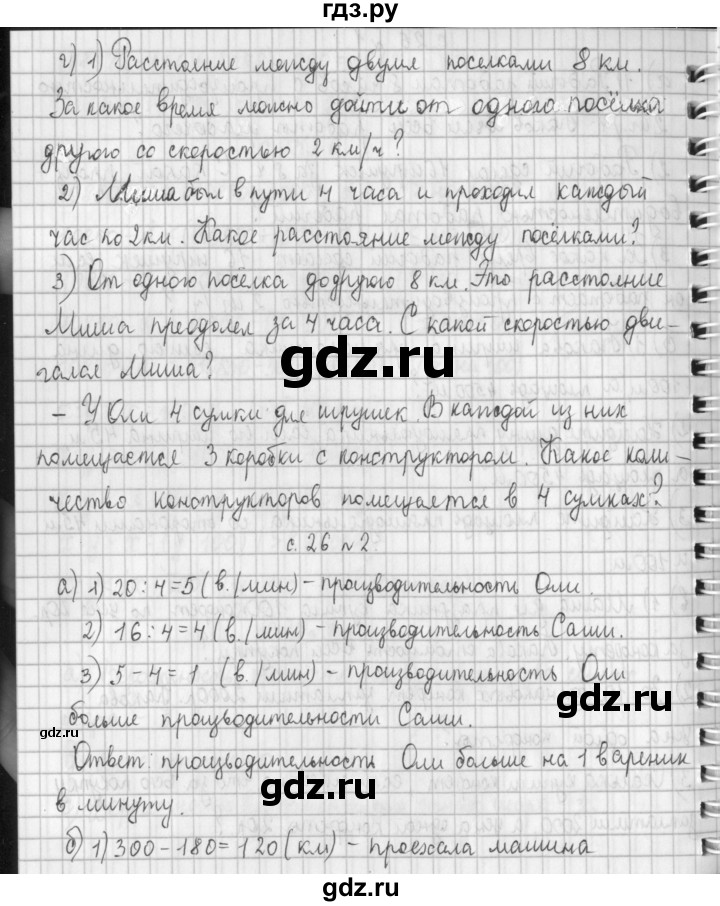 гдз.ру
г) 1) Расстояние между двумя поселками 8 км.
За какое время можно дойти от одного посёлка
другого со скоростью 2 км/ч?
2) Миша был в пути 4 часа и проходил каждый
час по 2 км. Какое расстояние между посёлками?
3) От одного посёлка до другого 8 км. Это расстояние
Миша преодолел за 4 часа. С какой скоростью дви-
gdz.ru
гался Миша?
- У Оли 4 сумки для игрушек. В каждой из них
помещается 3 коробки с конструктором. Какое коли-
чество конструкторов помещается в 4 сумках?
с. 26 №2
а) 1) 20 : 4 = 5 (в./мин) - производительность Оли.
2) 16 : 4 = 4 (в./мин) - производительность Саши.
3) 5 - 4 = 1 (в./мин) - производительность Оли
больше производительности Саши.
gdz.ru
Ответ: производительность Оли больше на 1 вареник
в минуту.
gdz.ru
б) 1) 300 - 180 = 120 (км) - проехала машина
gdz.ru